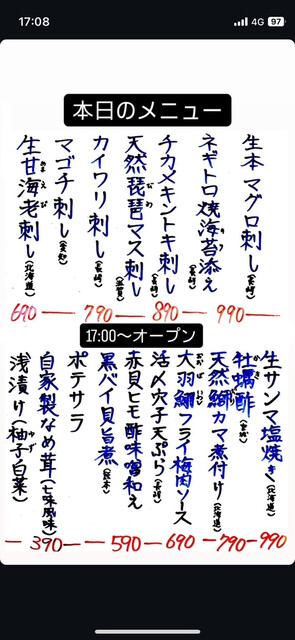 17:08
4G 97
本日のメニュー
生本マグロ刺し(長崎)
ネギトロ焼海苔添え
チカメキントキ刺し(長崎)
天然琵琶マス刺し(滋賀)
カイワリ刺し(長崎)
マゴチ刺し(愛知)
生甘海老刺し(北海道)
990 — 890 — 790 — 690
17:00〜オープン
生サンマ塩焼き(北海道)
牡蠣酢(宮城)
天然鰤カマ煮付け(北海道)
大羽鰯フライ梅肉ソース
活〆穴子天ぷら
赤貝ヒモ酢味噌和え
黒バイ貝旨煮
ポテサラ
自家製なめ茸(七味風味)
浅漬け(柚子白菜)
— 390 — 590 — 690 — 790 — 990